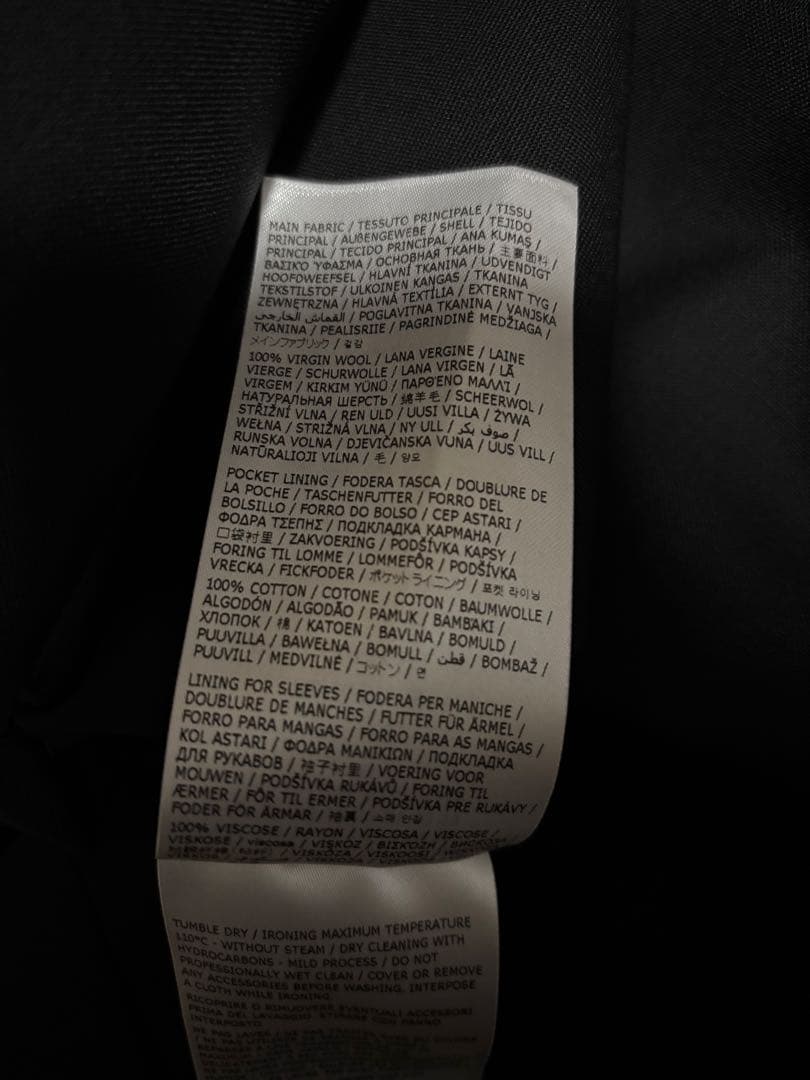 MAIN FABRIC / TESSUTO PRINCIPALE / TISSU
PRINCIPAL / AUßENGEWEBE / SHELL / TEJIDO
PRINCIPAL / TECIDO PRINCIPAL / ANA KUMAŞ /
ΒΑΣΙΚΌ ΎΦΑΣΜΑ / ОСНОВНАЯ ТКАНЬ / 主要面料 /
HOOFDWEEFSEL / HLAVNÍ TKANINA / UDVENDIGT
TEKSTILSTOF / ULKOINEN KANGAS / TKANINA
ZEWNĘTRZNA / HLAVNÁ TEXTÍLIA / EXTERNT TYG /
القماش الخارجي / POGLAVITNA TKANINA / VANJSKA
TKANINA / PEALISRIIE / PAGRINDINĖ MEDŽIAGA /
メインファブリック / 겉감
100% VIRGIN WOOL / LANA VERGINE / LAINE
VIERGE / SCHURWOLLE / LANA VIRGEN / LÃ
VIRGEM / KIRKIM YÜNÜ / ΠΑΡΘΈΝΟ ΜΑΛΛΊ /
НАТУРАЛЬНАЯ ШЕРСТЬ / 绵羊毛 / SCHEERWOL /
STŘIŽNÍ VLNA / REN ULD / UUSI VILLA / ŻYWA
WEŁNA / STRIŽNÁ VLNA / NY ULL / صوف بكر /
RUNSKA VOLNA / DJEVIČANSKA VUNA / UUS VILL /
NATŪRALIOJI VILNA / 毛 / 양모
POCKET LINING / FODERA TASCA / DOUBLURE DE
LA POCHE / TASCHENFUTTER / FORRO DEL
BOLSILLO / FORRO DO BOLSO / CEP ASTARI /
ΦΟΔΡΑ ΤΣΕΠΗΣ / ПОДКЛАДКА КАРМАНА /
口袋衬里 / ZAKVOERING / PODŠÍVKA KAPSY /
FORING TIL LOMME / LOMMEFÔR / PODŠÍVKA
VRECKA / FICKFODER / ポケットライニング / 포켓 라이닝
100% COTTON / COTONE / COTON / BAUMWOLLE /
ALGODÓN / ALGODÃO / PAMUK / ΒΑΜΒΆΚΙ /
ХЛОПОК / 棉 / KATOEN / BAVLNA / BOMULD /
PUUVILLA / BAWEŁNA / BOMULL / قطن / BOMBAŽ /
PUUVILL / MEDVILNĖ / コットン / 면
LINING FOR SLEEVES / FODERA PER MANICHE /
DOUBLURE DE MANCHES / FUTTER FÜR ÄRMEL /
FORRO PARA MANGAS / FORRO PARA AS MANGAS /
KOL ASTARI / ΦΟΔΡΑ ΜΑΝΙΚΙΩΝ / ПОДКЛАДКА
ДЛЯ РУКАВОВ / 袖子衬里 / VOERING VOOR
MOUWEN / PODŠÍVKA RUKÁVŮ / FORING TIL
ÆRMER / FÔR TIL ERMER / PODŠÍVKA PRE RUKÁVY /
FODER FÖR ÄRMAR / 袖裏 / 소매 안감
100% VISCOSE / RAYON / VISCOSA / VISCOSE /
VISKOSE / viscosa / VISKOZ / ΒΙΣΚΌΖΗ / ВИСКОЗА
VISKÓZA / VISKOOSI
TUMBLE DRY / IRONING MAXIMUM TEMPERATURE
110°C - WITHOUT STEAM / DRY CLEANING WITH
HYDROCARBONS - MILD PROCESS / DO NOT
PROFESSIONALLY WET CLEAN / COVER OR REMOVE
ANY ACCESSORIES BEFORE WASHING. INTERPOSE
A CLOTH WHILE IRONING.
RICOPRIRE O RIMUOVERE EVENTUALI ACCESSORI
PRIMA DEL LAVAGGIO. STIRARE CON PANNO
INTERPOSTO
NE PAS LAVER
/ NE PAS